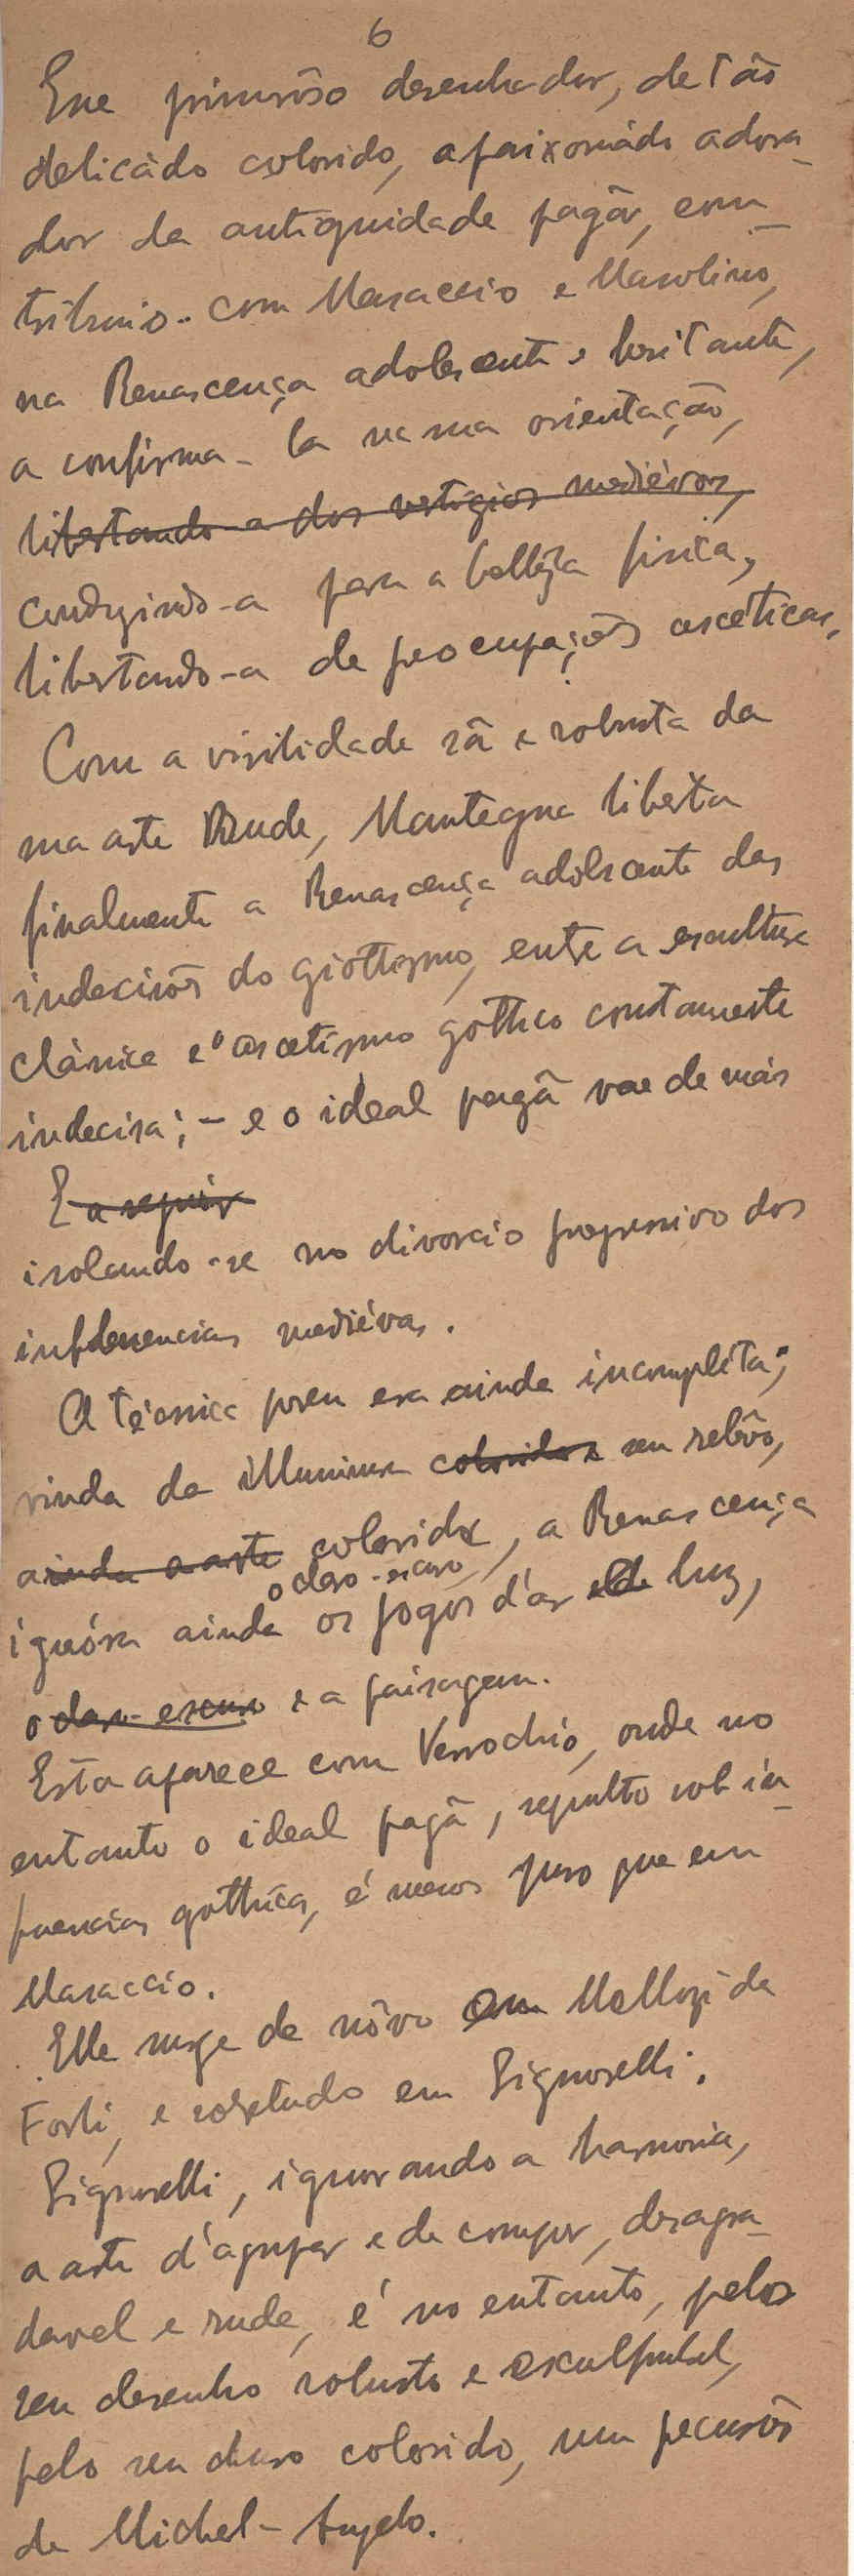 6
Esse primorôso desenhador, de tão
delicádo colorido, apaixonádo adora-
dor da antiguidade pagã, con-
tribuio - com Masaccio e Masolino,
na Renascença adolescente e hesitante,
a confirma-la na sua orientação,
libertando-a dos vestigios mediévos,
conduzindo-a para a bellêza fisica,
libertando-a de preocupações asceticas.
Com a virilidade sã e robusta da
sua arte rude, Mantegna liberta
finalmente a Renascença adolescente das
indecisões do giottismo, entre a escultura
clássica e o ascetismo gothico constamente
indecisa; - e o ideal pagã vae de mais
E a seguir
isolando-se no divorcio progressivo das
influencias mediévas.
A técnica porem era ainda incompléta;
vinda da illuminura colorida e seu relêvo,
ainda a arte colorida, a Renascença
o claro-escuro
ignóra ainda os jogos d'ar e de luz,
o claro-escuro e a paisagem.
Esta aparece com Verrochio, onde no
entanto o ideal pagã, sepulto sob in-
fluencias gothicas, é menos puro que em
Masaccio.
Elle surge de nôvo em Mellozi da
Forli, e sobretudo em Signorelli.
Signorelli, ignorando a harmonia,
a arte d'agrupar e de compor, desagra-
davel e rude, é no entanto, pelo
seu desenho robusto e esculptural,
pelo seu duro colorido, um precursôr
de Michel-Angelo.